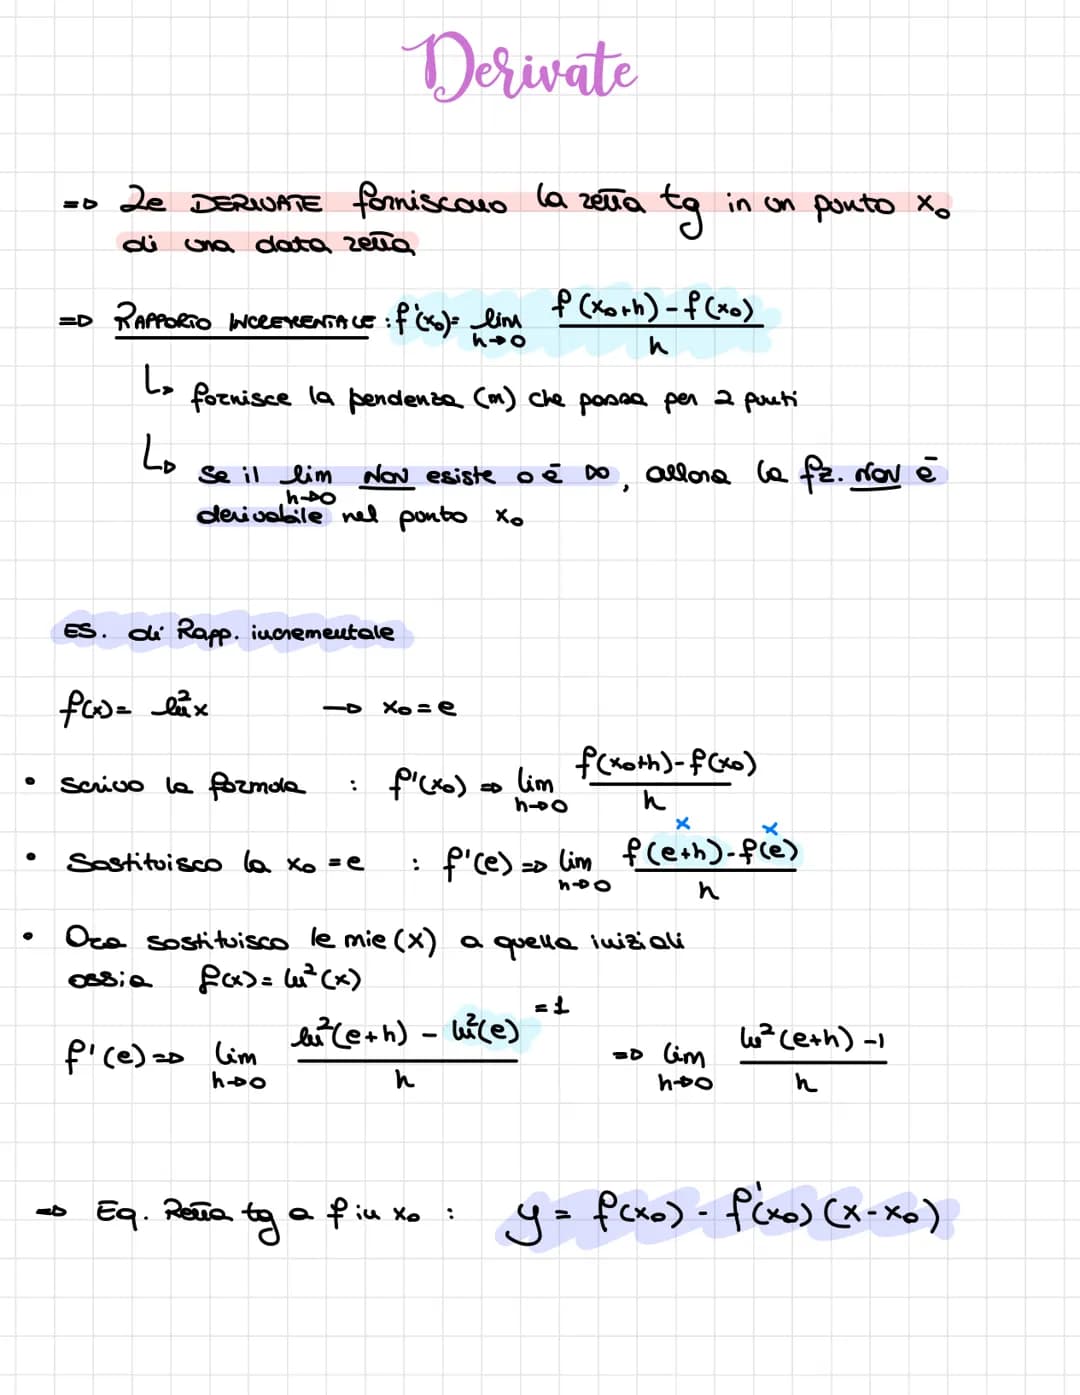 Derivate
=> Le DERIVATE forniscono la retta tg in un punto x₀
di una data retta
=> RAPPORTO INCREMENTALE : f'(x₀)= lim h→0 f(x₀+h)-f(x₀) / h
↳ fornisce la pendenza (m) che passa per 2 punti
↳ Se il lim h→0 NON esiste o è ∞, allora la fz. NON è
derivabile nel punto x₀
ES. di Rapp. incrementale
f(x)= ln²x → x₀=e
• Scrivo la formola : f'(x₀) => lim h→0 f(x₀+h)-f(x₀) / h
• Sostituisco la x₀ =e : f'(e) => lim h→0 f(e+h)-f(e) / h
x x
• Ora sostituisco le mie (x) a quella iniziali
ossia f(x)= ln²(x)
f'(e) => lim h→0 ln²(e+h) - ln²(e) / h =1 => lim h→0 ln²(e+h) -1 / h
=> Eq. Retta tg a f in x₀ : y = f(x₀) - f'(x₀) (x-x₀)